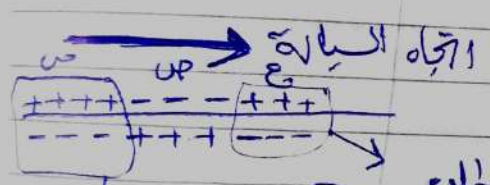 اتجاه السيالة
س ص ع
++++ --- +++
--- +++ ---